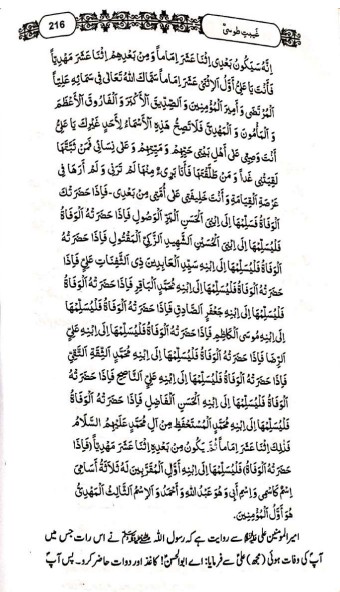 216
غیبتِ طوسیؒ
إِنَّهُ سَيَكُونُ بَعْدِي اِثْنَا عَشَرَ إِمَاماً وَ مِنْ بَعْدِهِمْ اِثْنَا عَشَرَ مَهْدِيّاً
فَأَنْتَ يَا عَلِيُّ أَوَّلُ الْاِثْنَيْ عَشَرَ إِمَاماً سَمَّاكَ اللَّهُ تَعَالَى فِي سَمَائِهِ عَلِيّاً
الْمُرْتَضَى وَ أَمِيرَ الْمُؤْمِنِينَ وَ الصِّدِّيقَ الْأَكْبَرَ وَ الْفَارُوقَ الْأَعْظَمَ
وَ الْمَأْمُونَ وَ الْمَهْدِيَّ فَلَا تَصِحُّ هَذِهِ الْأَسْمَاءُ لِأَحَدٍ غَيْرِكَ يَا عَلِيُّ
أَنْتَ وَصِيِّي عَلَى أَهْلِ بَيْتِي حَيِّهِمْ وَ مَيِّتِهِمْ وَ عَلَى نِسَائِي فَمَنْ ثَبَّتَّهَا
لَقِيَتْنِي غَداً وَ مَنْ طَلَّقْتَهَا فَأَنَا بَرِيءٌ مِنْهَا لَمْ تَرَنِي وَ لَمْ أَرَهَا فِي
عَرْصَةِ الْقِيَامَةِ وَ أَنْتَ خَلِيفَتِي عَلَى أُمَّتِي مِنْ بَعْدِي۔ فَإِذَا حَضَرَتْكَ
الْوَفَاةُ فَسَلِّمْهَا إِلَى اِبْنِيَ الْحَسَنِ الْبَرِّ الْوَصُولِ فَإِذَا حَضَرَتْهُ الْوَفَاةُ
فَلْيُسَلِّمْهَا إِلَى اِبْنِيَ الْحُسَيْنِ الشَّهِيدِ الزَّكِيِّ الْمَقْتُولِ فَإِذَا حَضَرَتْهُ
الْوَفَاةُ فَلْيُسَلِّمْهَا إِلَى اِبْنِهِ سَيِّدِ الْعَابِدِينَ ذِي الثَّفِنَاتِ عَلِيٍّ فَإِذَا
حَضَرَتْهُ الْوَفَاةُ فَلْيُسَلِّمْهَا إِلَى اِبْنِهِ مُحَمَّدٍ الْبَاقِرِ فَإِذَا حَضَرَتْهُ الْوَفَاةُ
فَلْيُسَلِّمْهَا إِلَى اِبْنِهِ جَعْفَرٍ الصَّادِقِ فَإِذَا حَضَرَتْهُ الْوَفَاةُ فَلْيُسَلِّمْهَا
إِلَى اِبْنِهِ مُوسَى الْكَاظِمِ فَإِذَا حَضَرَتْهُ الْوَفَاةُ فَلْيُسَلِّمْهَا إِلَى اِبْنِهِ عَلِيٍّ
الرِّضَا فَإِذَا حَضَرَتْهُ الْوَفَاةُ فَلْيُسَلِّمْهَا إِلَى اِبْنِهِ مُحَمَّدٍ الثِّقَةِ التَّقِيِّ
فَإِذَا حَضَرَتْهُ الْوَفَاةُ فَلْيُسَلِّمْهَا إِلَى اِبْنِهِ عَلِيٍّ النَّاصِحِ فَإِذَا حَضَرَتْهُ
الْوَفَاةُ فَلْيُسَلِّمْهَا إِلَى اِبْنِهِ الْحَسَنِ الْفَاضِلِ فَإِذَا حَضَرَتْهُ الْوَفَاةُ
فَلْيُسَلِّمْهَا إِلَى اِبْنِهِ مُحَمَّدٍ الْمُسْتَحْفَظِ مِنْ آلِ مُحَمَّدٍ عَلَيْهِمُ السَّلَامُ
فَذَلِكَ اِثْنَا عَشَرَ إِمَاماً ثُمَّ يَكُونُ مِنْ بَعْدِهِ اِثْنَا عَشَرَ مَهْدِيّاً (فَإِذَا
حَضَرَتْهُ الْوَفَاةُ) فَلْيُسَلِّمْهَا إِلَى اِبْنِهِ أَوَّلِ الْمُقَرَّبِينَ لَهُ ثَلَاثَةُ أَسَامِيَ
اِسْمٌ كَاسْمِي وَ اِسْمِ أَبِي وَ هُوَ عَبْدُ اللَّهِ وَ أَحْمَدُ وَ الْاِسْمُ الثَّالِثُ الْمَهْدِيُّ
هُوَ أَوَّلُ الْمُؤْمِنِينَ۔
امیر المومنین علی علیہ السلام سے روایت ہے کہ رسول اللہ صلی اللہ علیہ وآلہ وسلم نے اس رات جس میں
آپؐ کی وفات ہوئی (مجھ) علیؑ سے فرمایا: اے ابو الحسنؑ! کاغذ اور دوات حاضر کرو۔ پس آپؐ